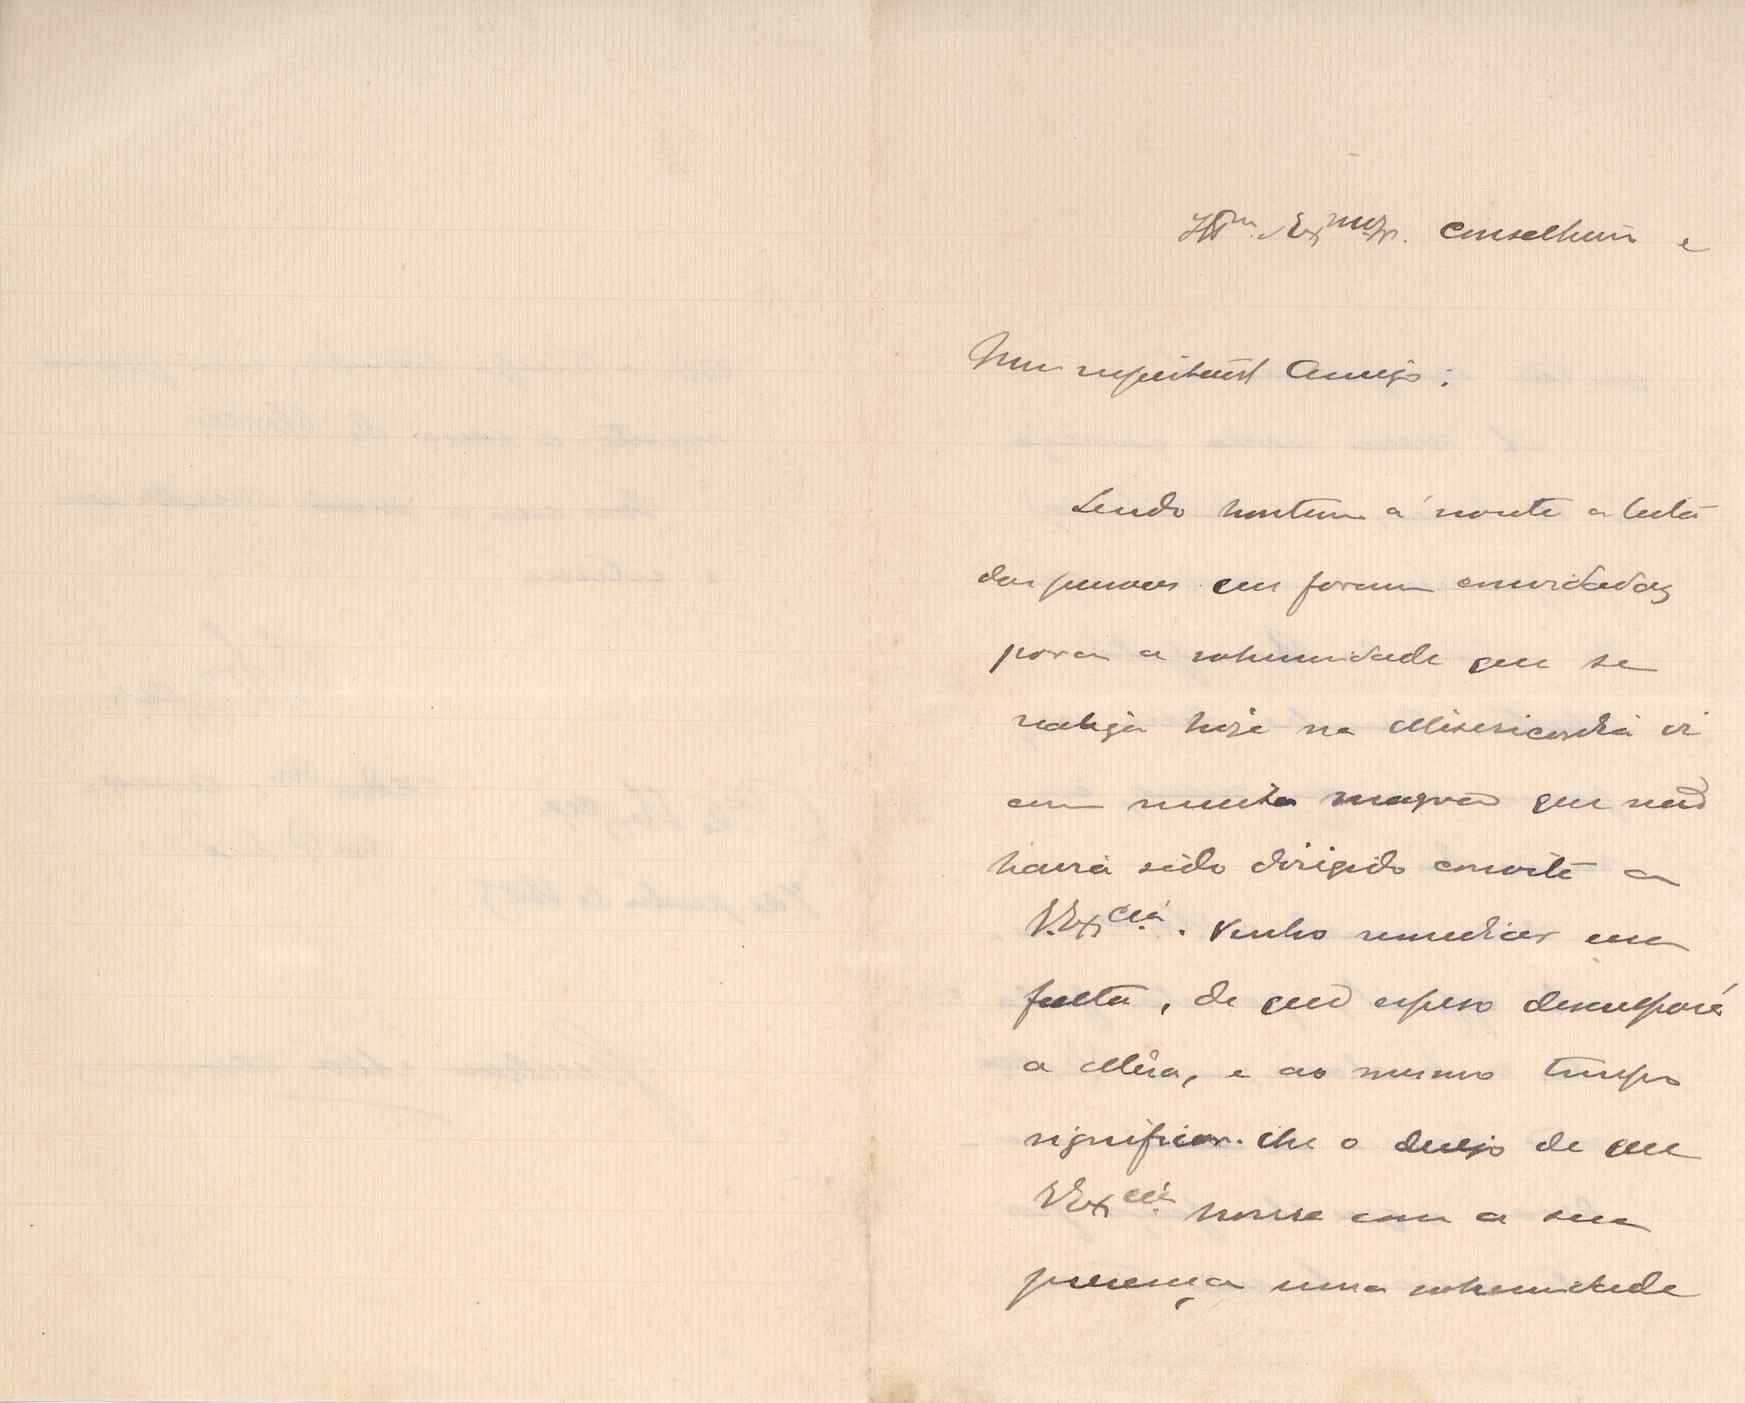 Illm. Exmo Sr. Conselheiro e
Meu respeitavel Amigo:
Lendo hontem á noute a lista
das pessoas que foram convidadas
para a solemnidade que se
realiza hoje na Misericordia vi
com muita magua que não
havia sido dirigido convite a
V. Excia. Venho remediar essa
falta, de que espero desculpará
a Mêsa, e ao mesmo tempo
significar-lhe o desejo de que
V. Excia. honre com a sua
presença uma solemnidade